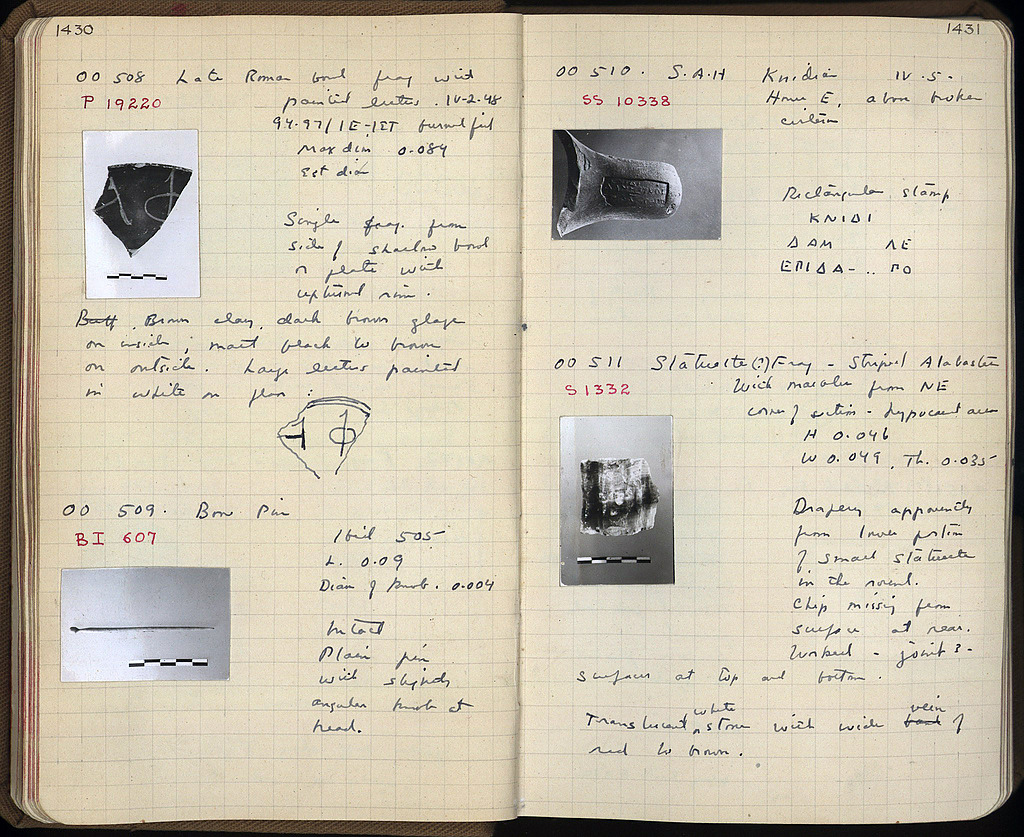 1430
OO 508 Late Roman bowl frag with
P 19220 painted letters. IV-2-48
94-97/ΙΕ-ΙΣΤ burned fill
Max dim 0.084
Est diam
Single frag. from
side of shallow bowl
or plate with
upturned rim.
Buff, Brown clay, dark brown glaze
on inside; matt black to brown
on outside. Large letters painted
in white on floor:
OO 509. Bone Pin
BI 607 Ibid 505
L. 0.09
Diam of knob. 0.004
Intact
Plain pin
with slightly
angular knob at
head.
1431
OO 510. S.A.H Knidian IV.5.
SS 10338 House E, above broken
cistern
Rectangular stamp
ΚΝΙΔΙ
ΔΑΜ ΛΕ
ΕΠΙΔΑ-..ΠΟ
OO 511 Statuette(?) Frag - Striped Alabaster
S 1332 With marbles from NE
corner of section - hypocaust area
H 0.046
W 0.049, Th. 0.035
Drapery apparently
from lower portion
of small statuette
in the round.
Chip missing from
surface at rear.
Worked - joint? -
surfaces at top and bottom.
Translucent white stone with wide band vein of
red to brown.